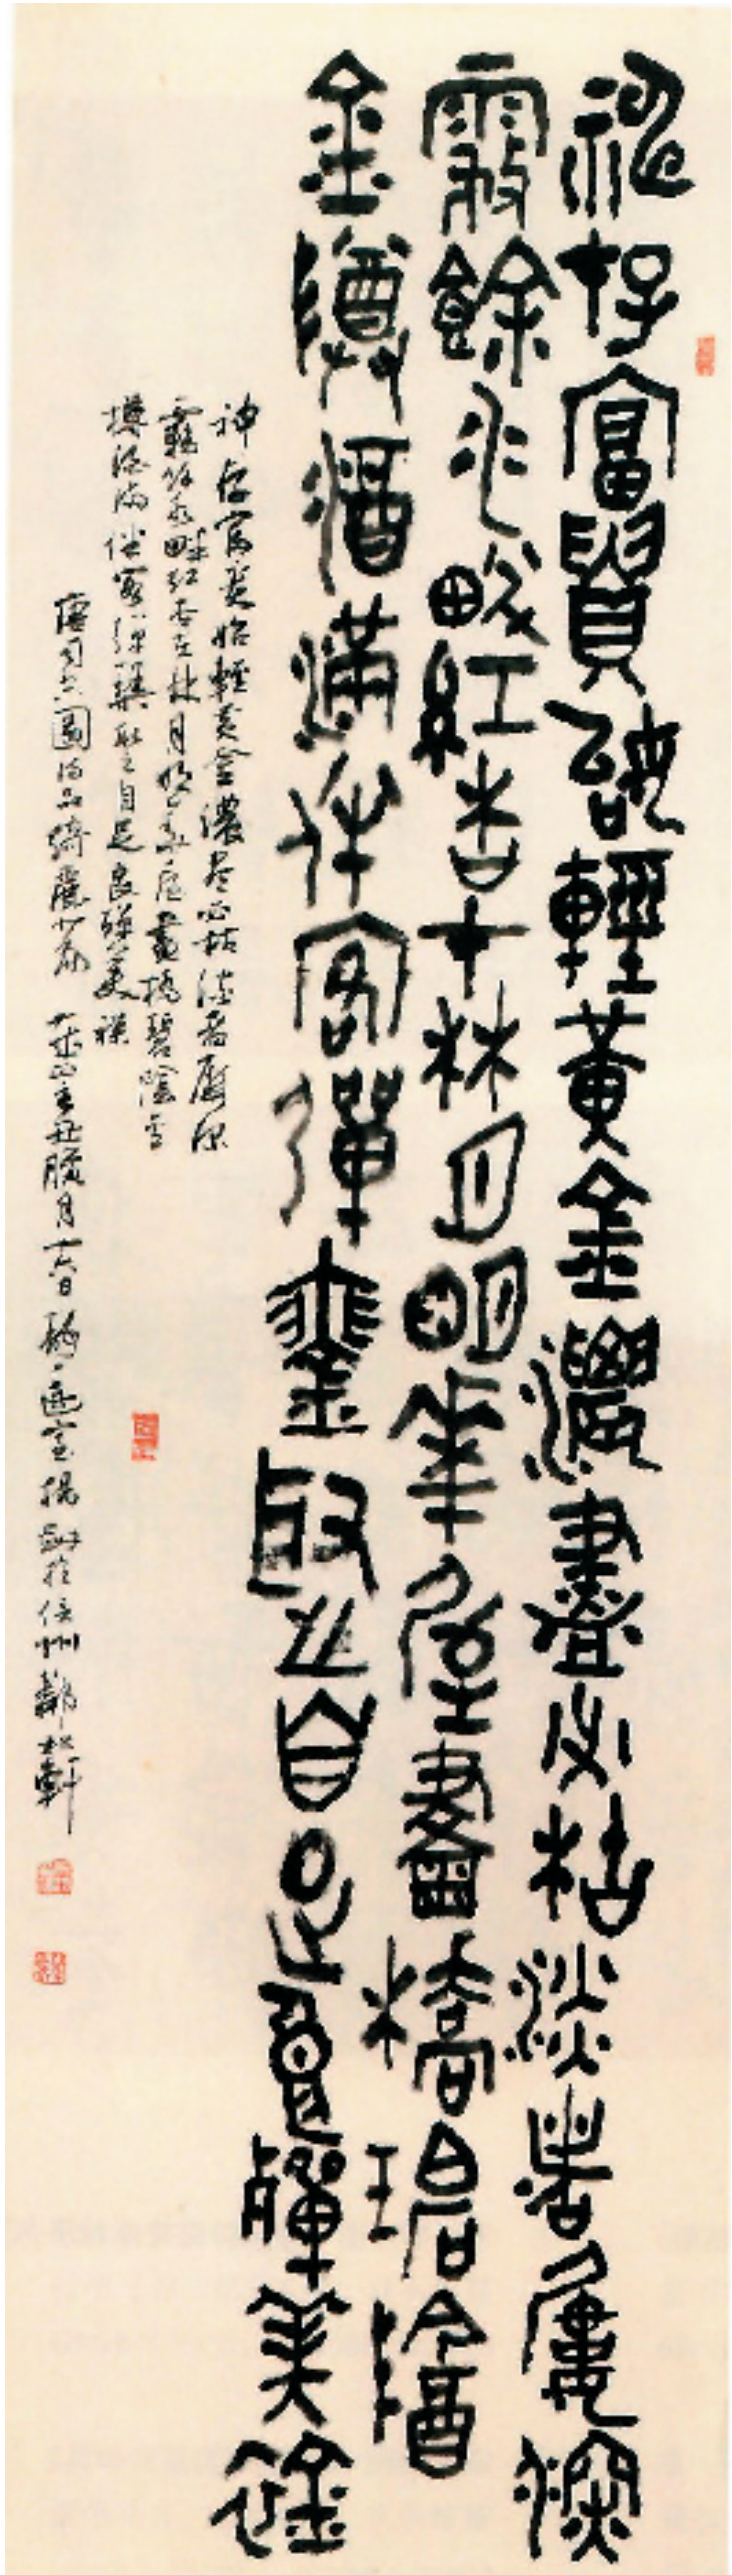 神存富貴始輕黃金濃盡必枯淡者屢深
霧餘水畔紅杏在林月明華屋畫橋碧陰
金尊酒滿伴客彈琴取之自足良殫美襟
神存富貴始輕黃金濃盡必枯淡者屢深
霧餘水畔紅杏在林月明華屋畫橋碧陰金
樽酒滿伴客彈琴取之自足良殫美襟
唐司空圖詩品綺麗 丑臘月十六日 於信州 軒